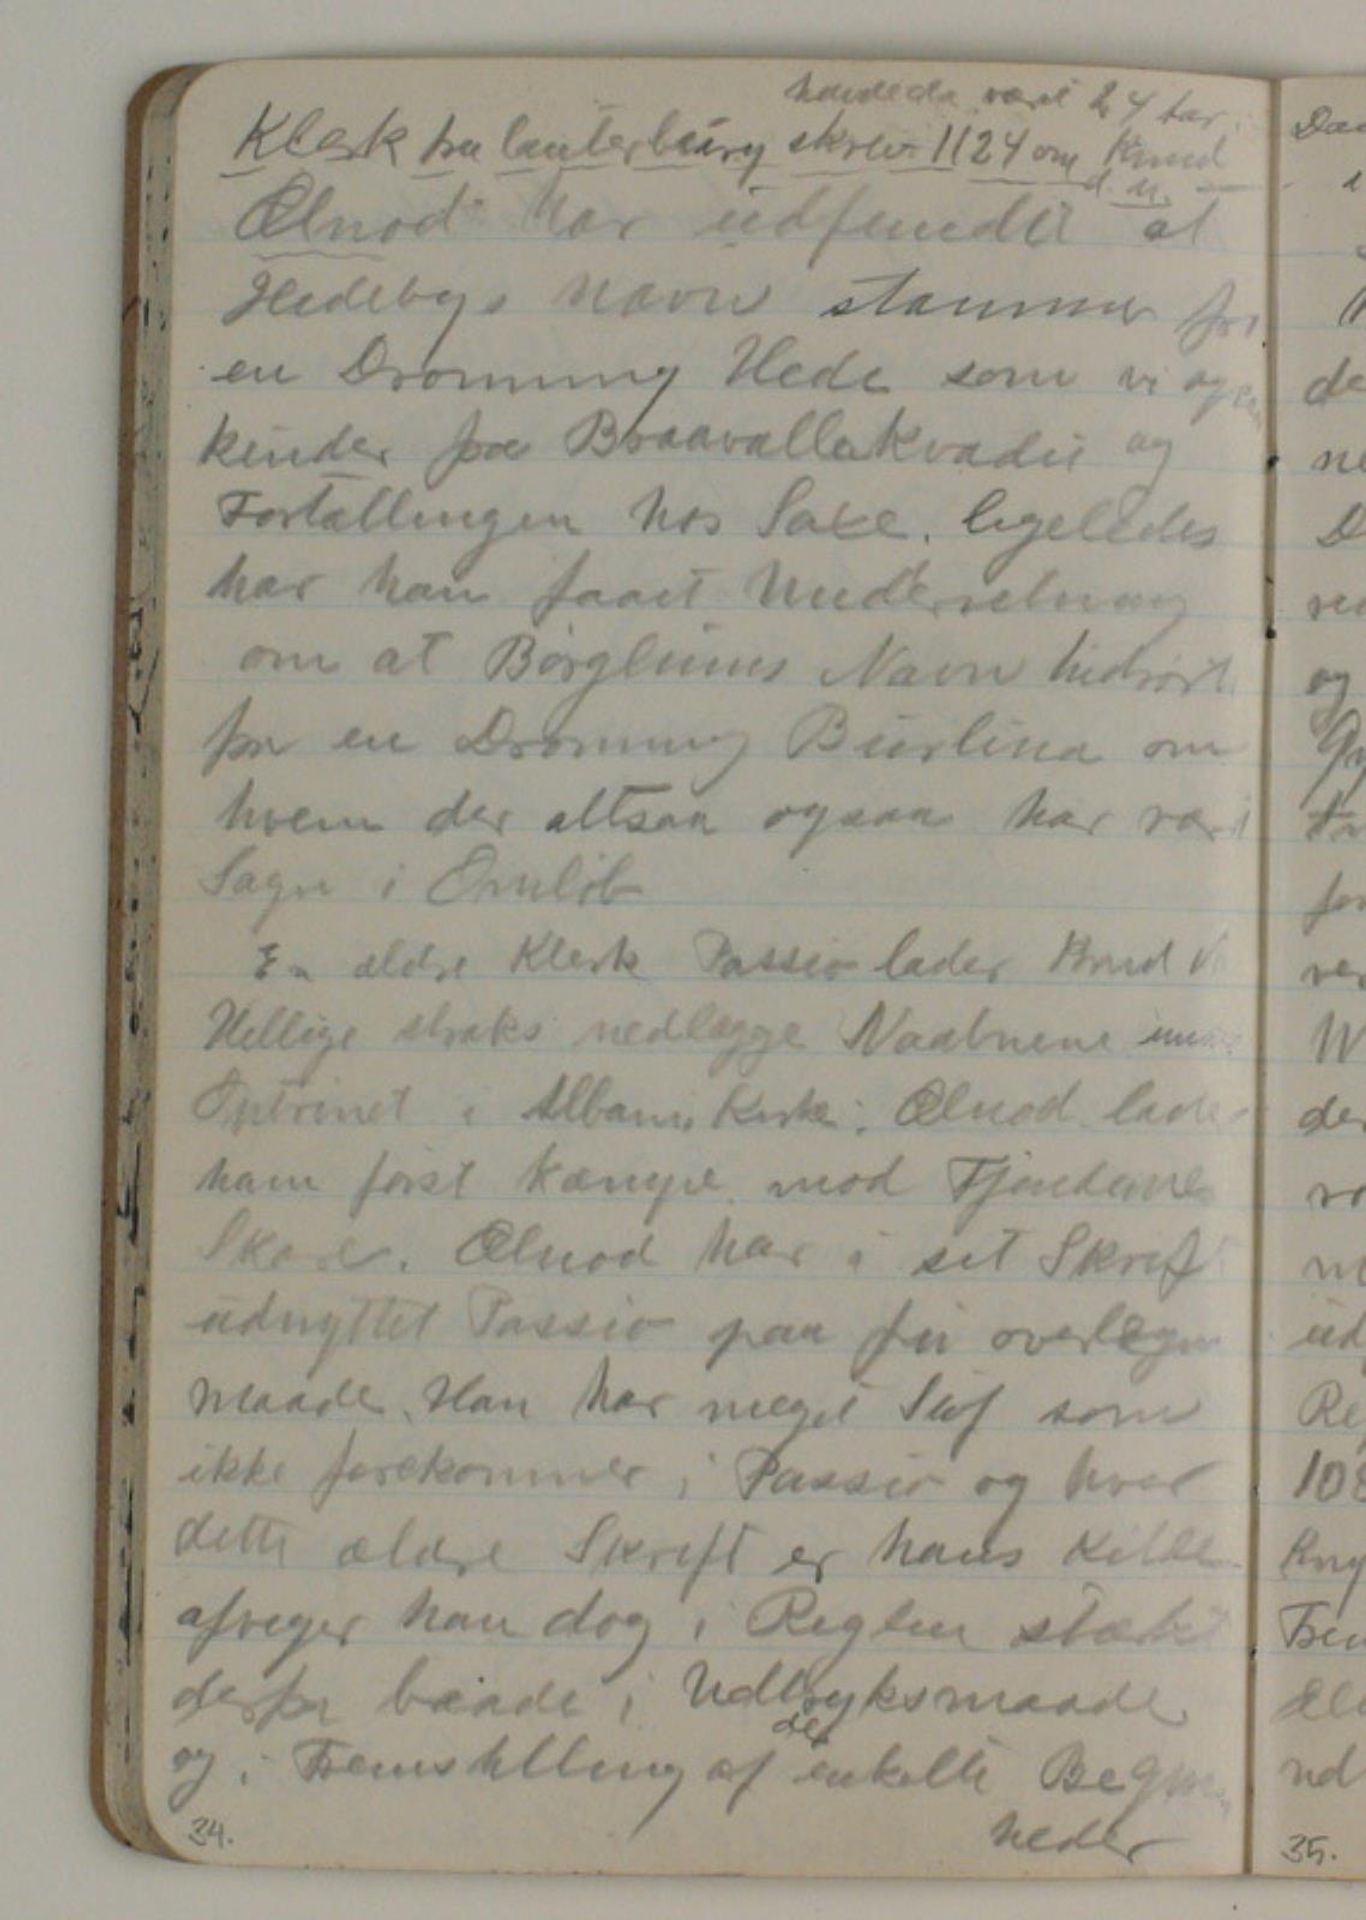 havde da været 24 Aar
Klerk fra Canterbury skrev 1124 om Knud
d. H.
Ælnod har udfundet at
Hedebys Navn stammer fra
en Dronning Hede som vi ogsaa
kender fra Braavallakvadet og
Fortællingen hos Saxe. ligeledes
har han faaet Underretning
om at Börglums Navn hidrört
fra en Dronning Burlina om
hvem der altsaa ogsaa har været
Sagn i Omløb
En ældre Klerk Passio lader Knud
Hellige straks nedlægge Vaabnene
Optrinet i Albani Kirke. Ælnod lader
ham först kæmpe mod Fjendernes
Skare. Ælnod har i sit Skrift
udnyttet Passio paa fri overlegen
Maade. Han har meget Stof som
ikke forekommer i Passio og hvor
dette ældre Skrift er hans Kilde
afviger han dog i Reglen stærkt
derfra baade i Udtryksmaade
og i Fremstilling af de enkelte Begiven
heder
34.
35.